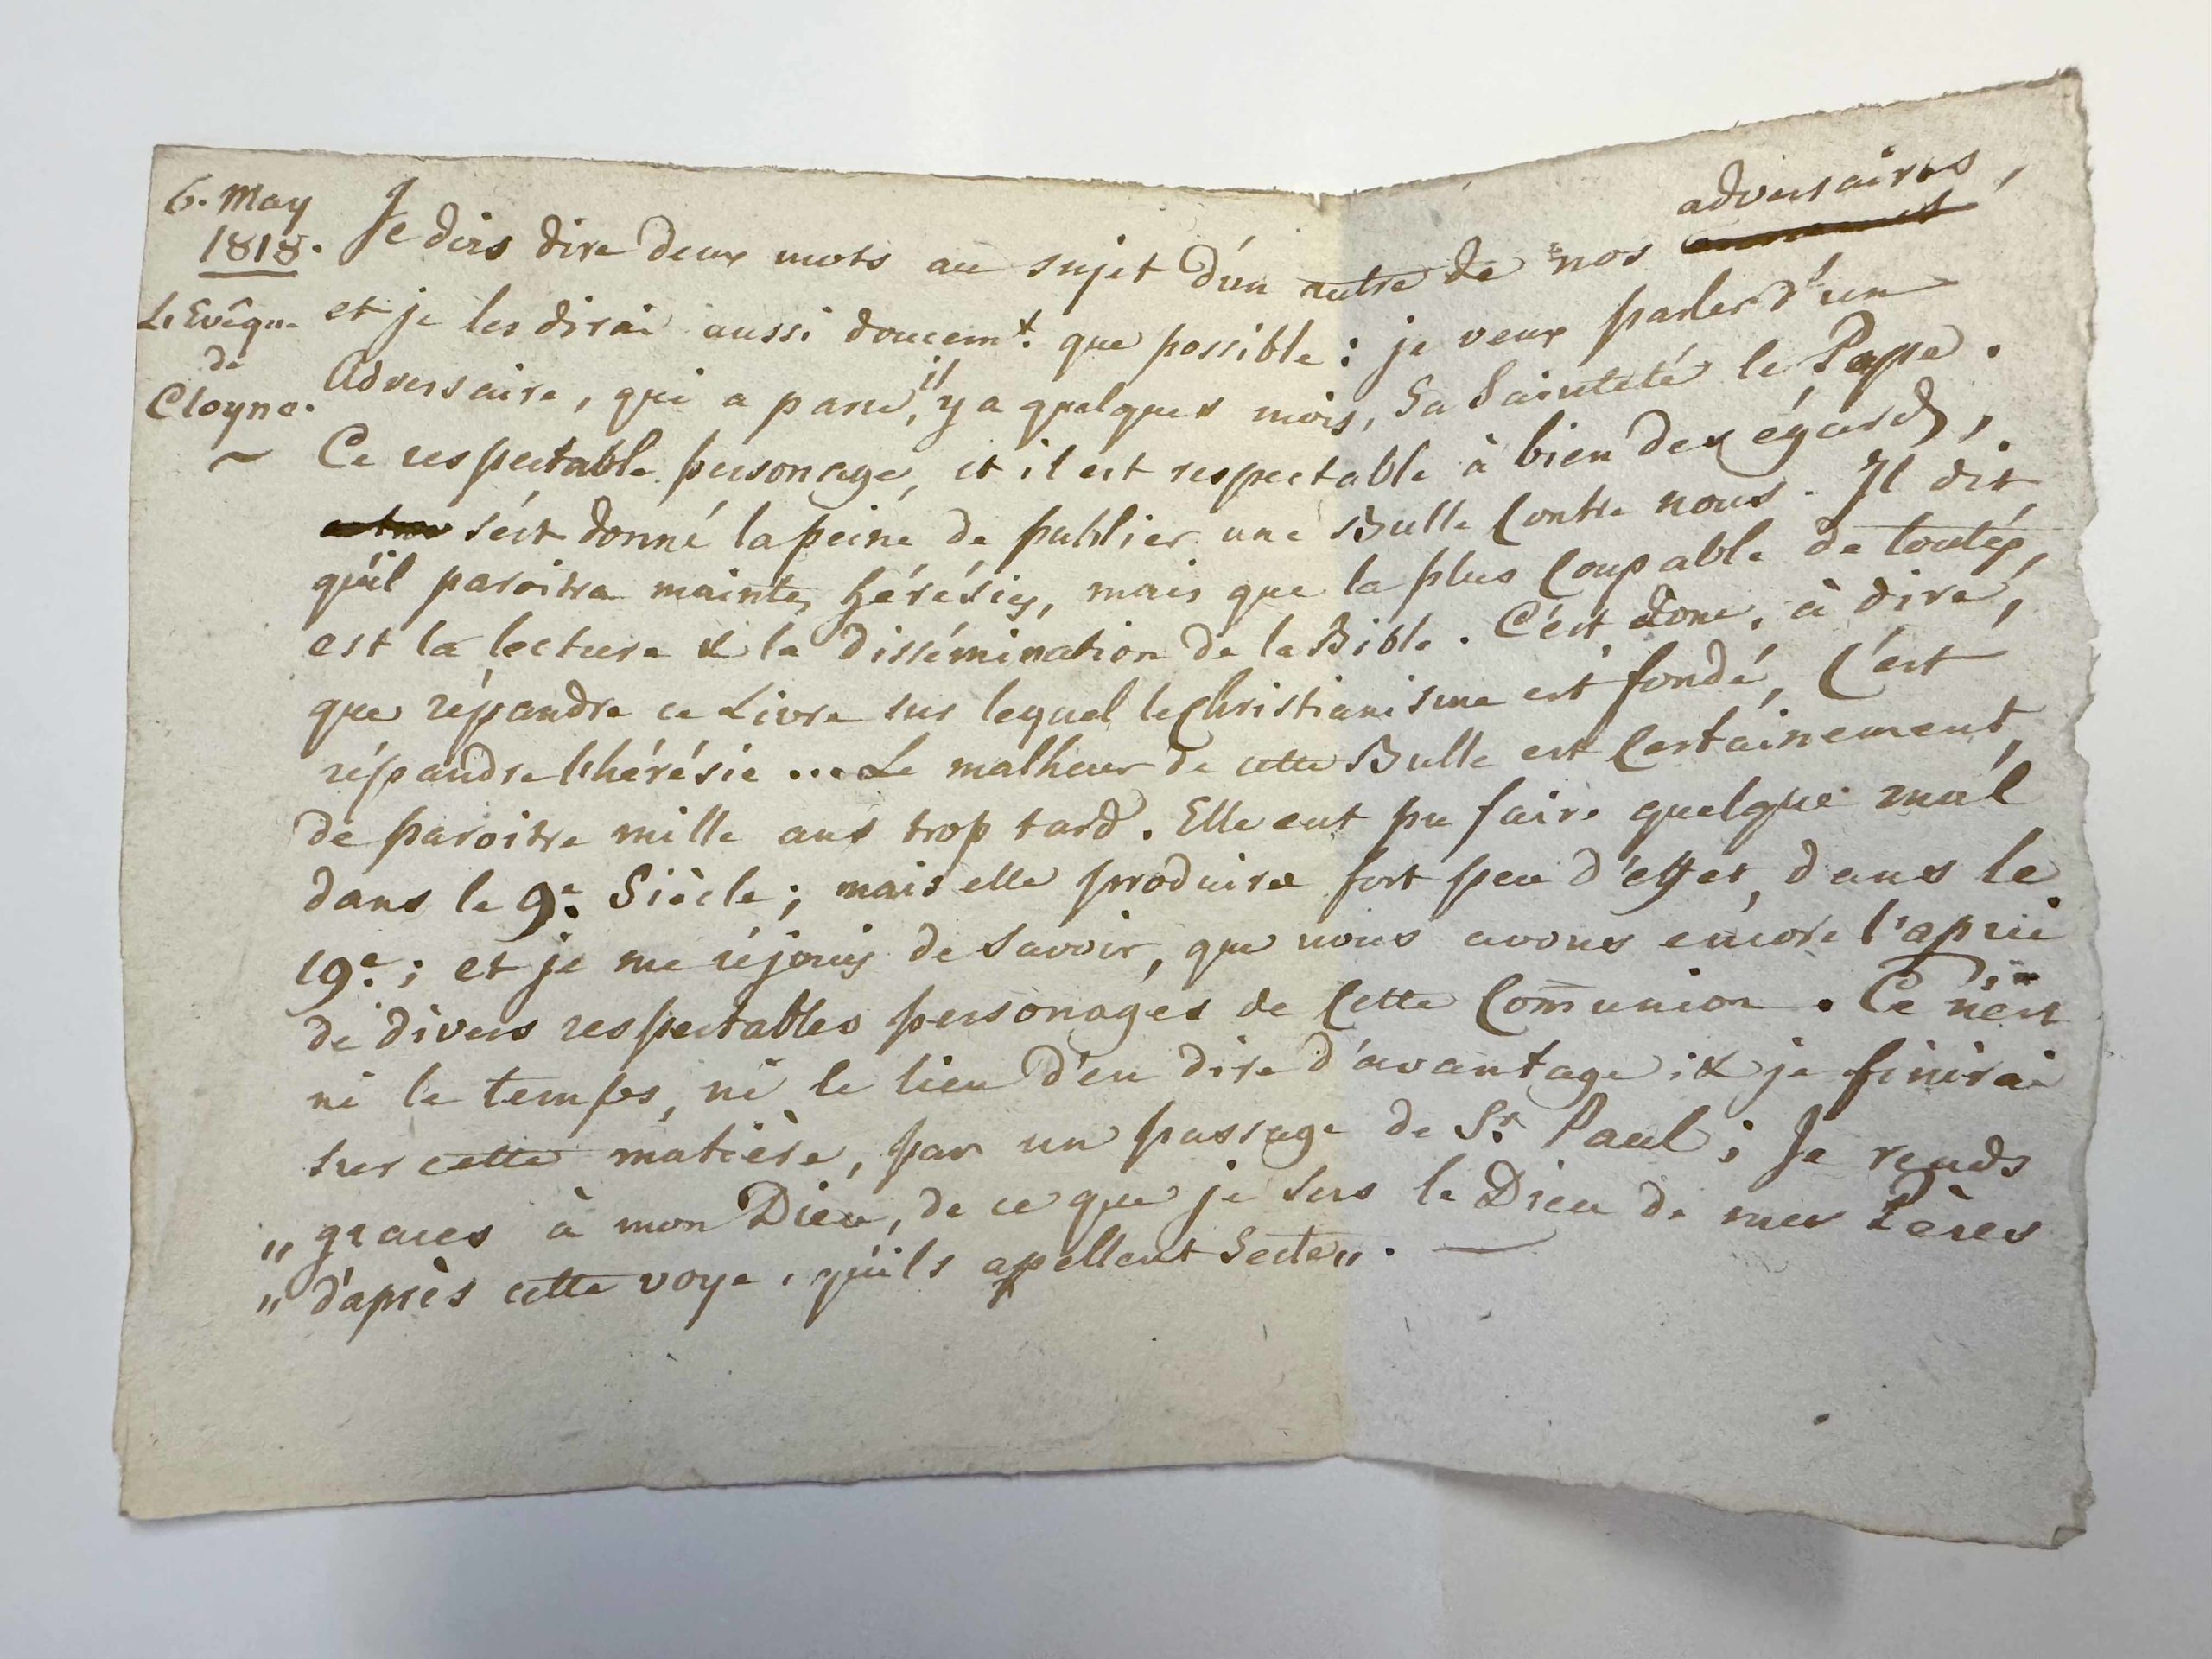 6. May
1818.
L'Evêque
de
Cloyne.
adversaires,
Je dois dire deux mots au sujet d'un autre de nos ennemis
et je les dirai aussi doucemt. que possible: je veux parler d'un
il
Adversaire, qui a paru, y a quelques mois, Sa Sainteté le Pape.
Ce respectable personage, et il est respectable à bien des égards,
s'est donné la peine de publier une Bulle Contre nous. Il dit
qu'il paroitra maintes hérésies, mais que la plus Coupable de toutes,
est la lecture & la dissémination de la Bible. C'est donc, à dire,
que répandre ce Livre sur lequel le Christianisme est fondé, C'est
répandre l'hérésie ... Le malheur de cette Bulle est Certainement,
de paroitre mille ans trop tard. Elle eut pu faire quelque mal
dans le 9e. Siècle; mais elle produira fort peu d'effet, dans le
19e.; et je me réjouis de savoir, que nous avons encore l'apui
de divers respectables personages de Cette Com̄union. Ce n'est
ni le temps, ni le lieu d'en dire d'avantage; & je finirai
sur cette matière, par un passage de St. Paul; Je rends
„ graces à mon Dieu, de ce que je sers le Dieu de mes Pères
„ d'après cette voye, qu'ils apellent Secte„. —